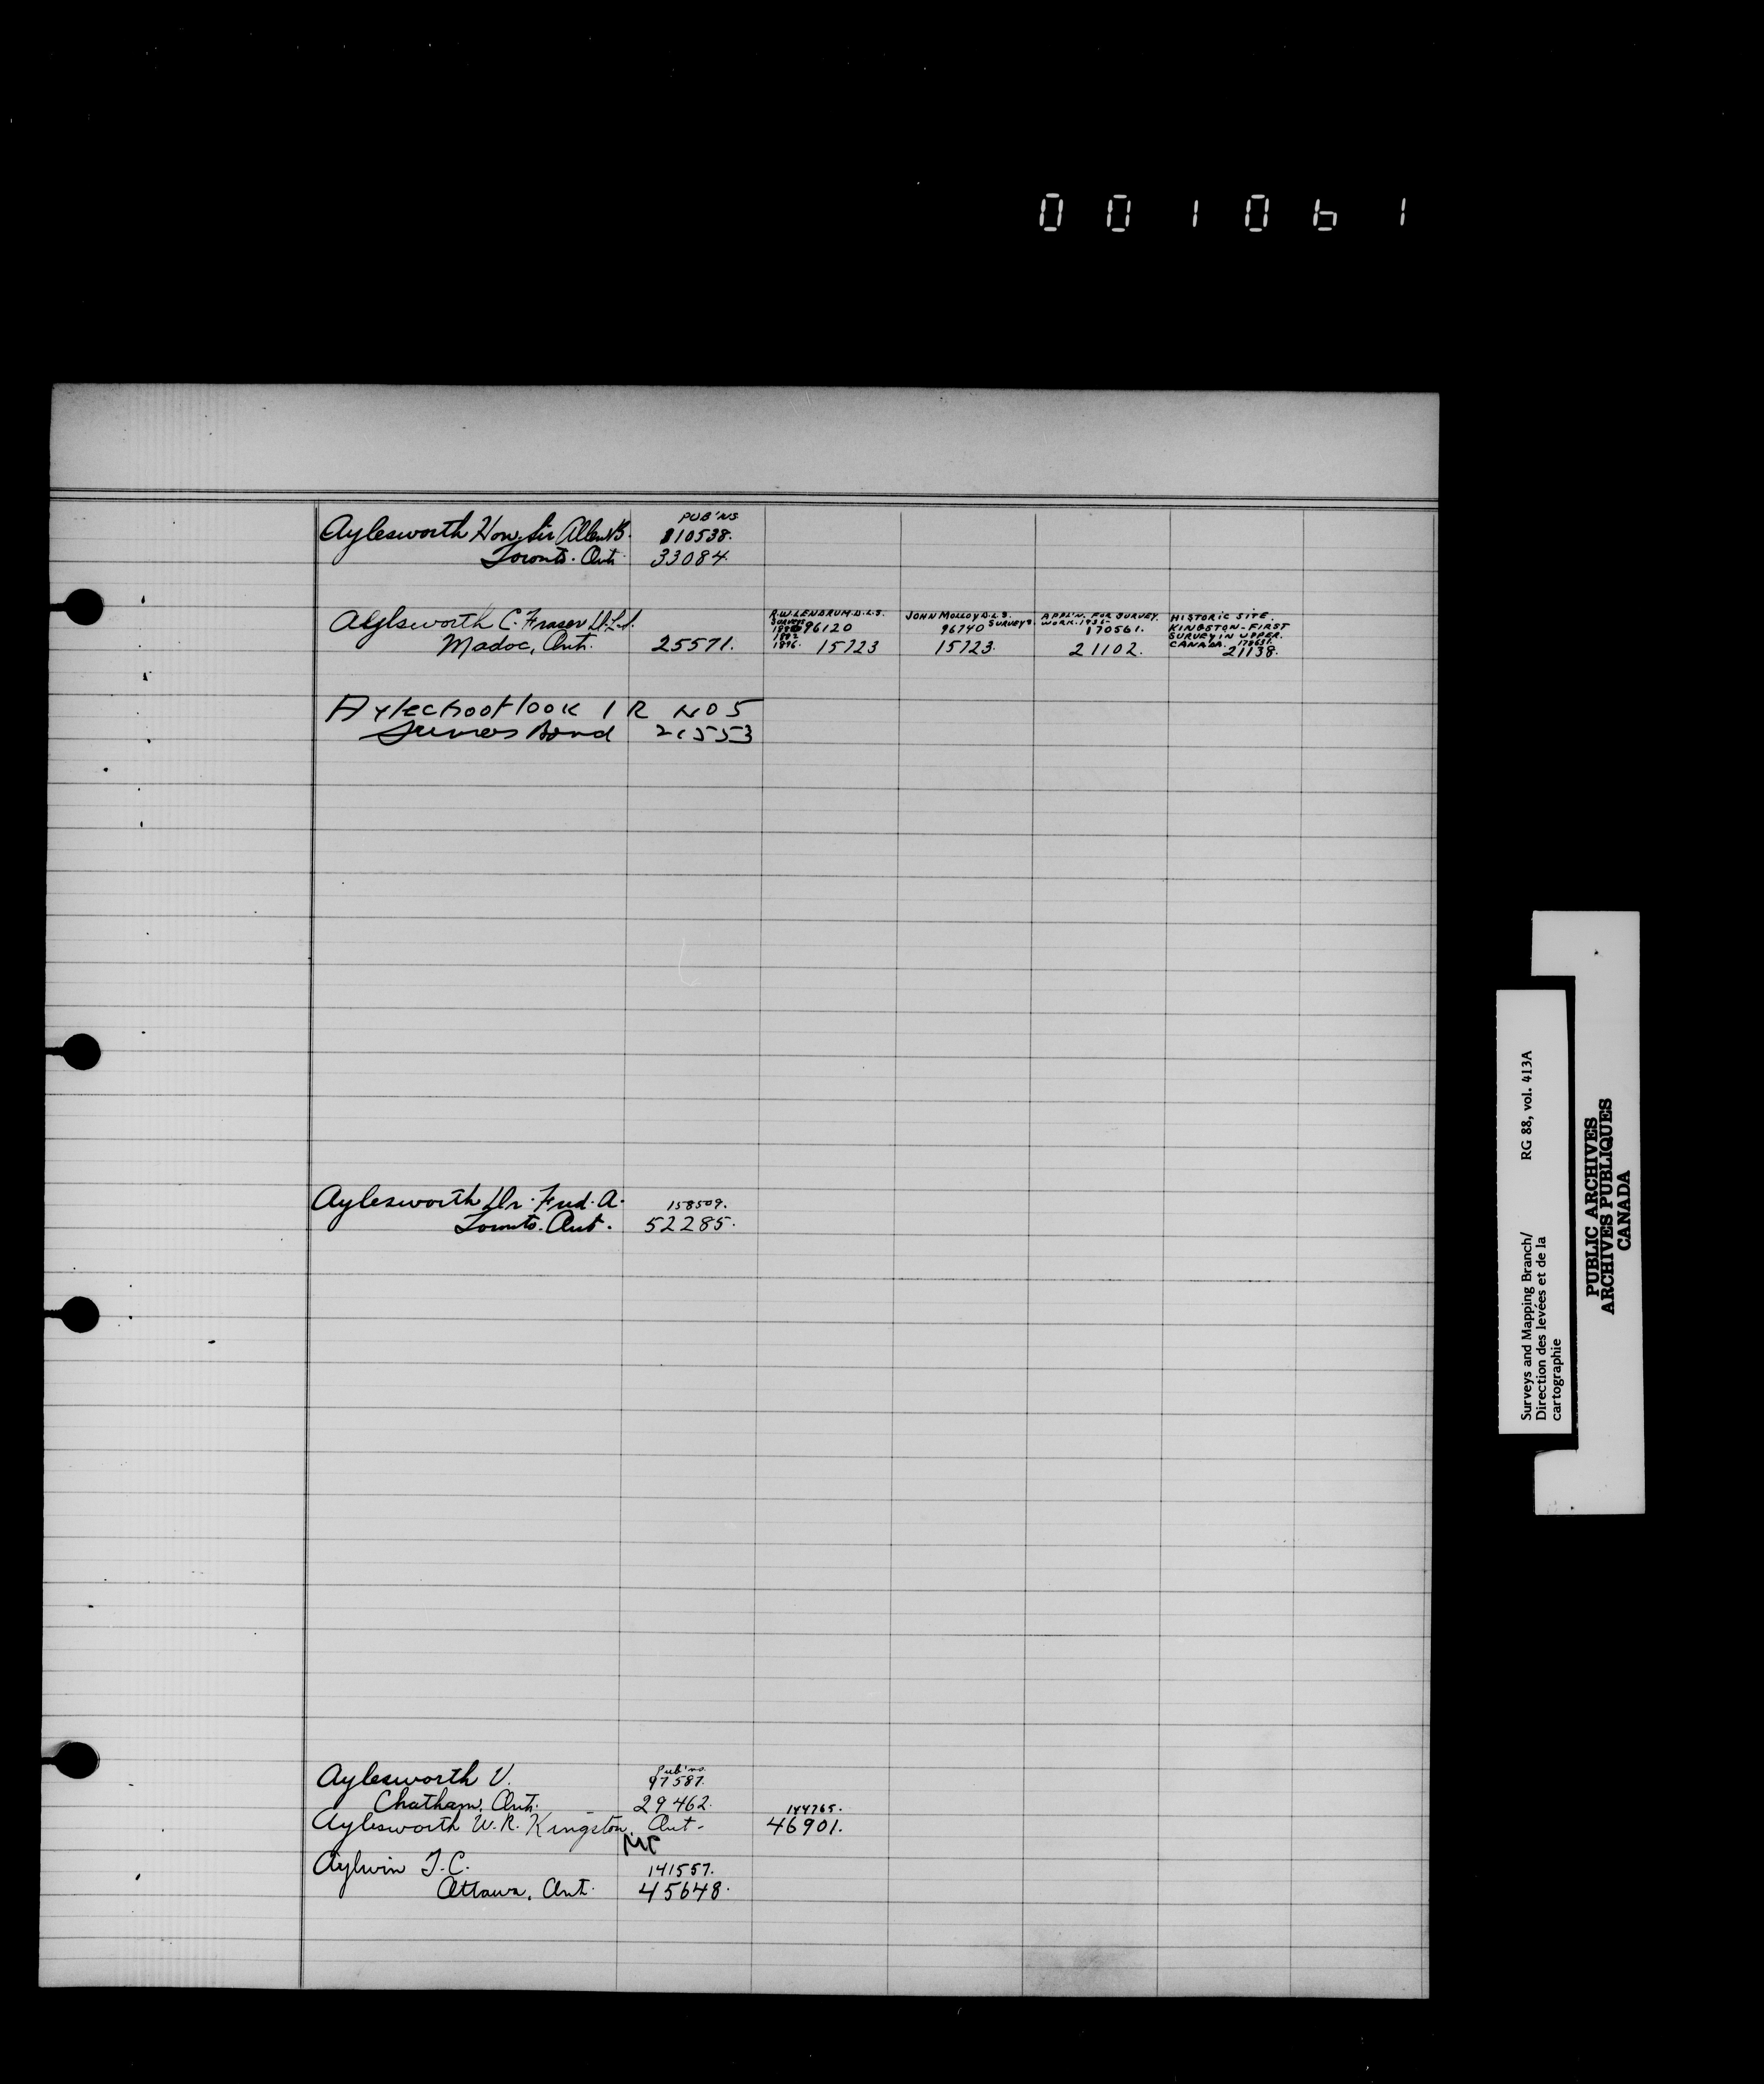 001061
PUB'NS
Aylesworth Hon. Sir Allen B. 210538.
Toronto. Ont. 33084.
R.W. LENDRUM D.L.S. JOHN MOLLOY D.L.S. APPL'N. FOR SURVEY HISTORIC SITE.
Aylsworth C. Fraser D.L.S. SURVEYS 96120 96740 SURVEYS. WORK. 170561. KINGSTON-FIRST
1892 SURVEY IN UPPER
Madoc, Ont. 25571. 1896. 15723 15723. 21102. CANADA. 21138.
Aylechootlook I R NO 5
Sumas Band 21553
Aylesworth Dr. Fred. A. 158509.
Toronto. Ont. 52285.
Pub'ns
Aylesworth V. 97587.
Chatham, Ont. 29462. 144765.
Aylesworth W. R. Kingston, Ont. 46901.
Aylwin T. C. 141557.
Ottawa, Ont. 45648.
Surveys and Mapping Branch/ RG 88, vol. 413A
Direction des levées et de la
cartographie
PUBLIC ARCHIVES
ARCHIVES PUBLIQUES
CANADA